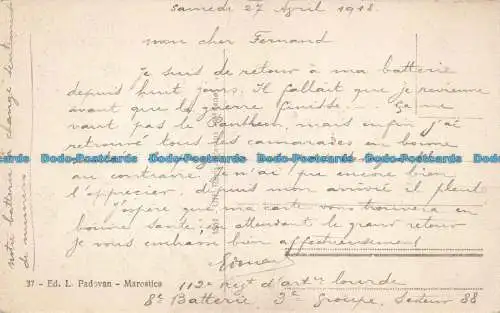 Samedi 27 April 1918.
mon cher Fernand
Je suis de retour à ma batterie
depuis huit jours. Il fallait que je revienne
avant que la guerre finisse... Ça ne
vaut pas le Panthéon, mais enfin j'ai
retrouvé tous les camarades en bonne
au contraire. Je n'ai pas encore bien
l'apprécier, depuis mon arrivée il pleut
J'espère que ma carte vous trouvera en
bonne santé, en attendant le grand retour
je vous embrasse bien affectueusement
37 - Ed. L. Padovan - Marostica
112e Regt d'artie lourde
8e Batterie 3e Groupe, Secteur 88
notre batterie a changé
de numéro
Dodo-Postcards Dodo-Postcards Dodo-Postcards Dodo-Postcards Dodo-Postcards